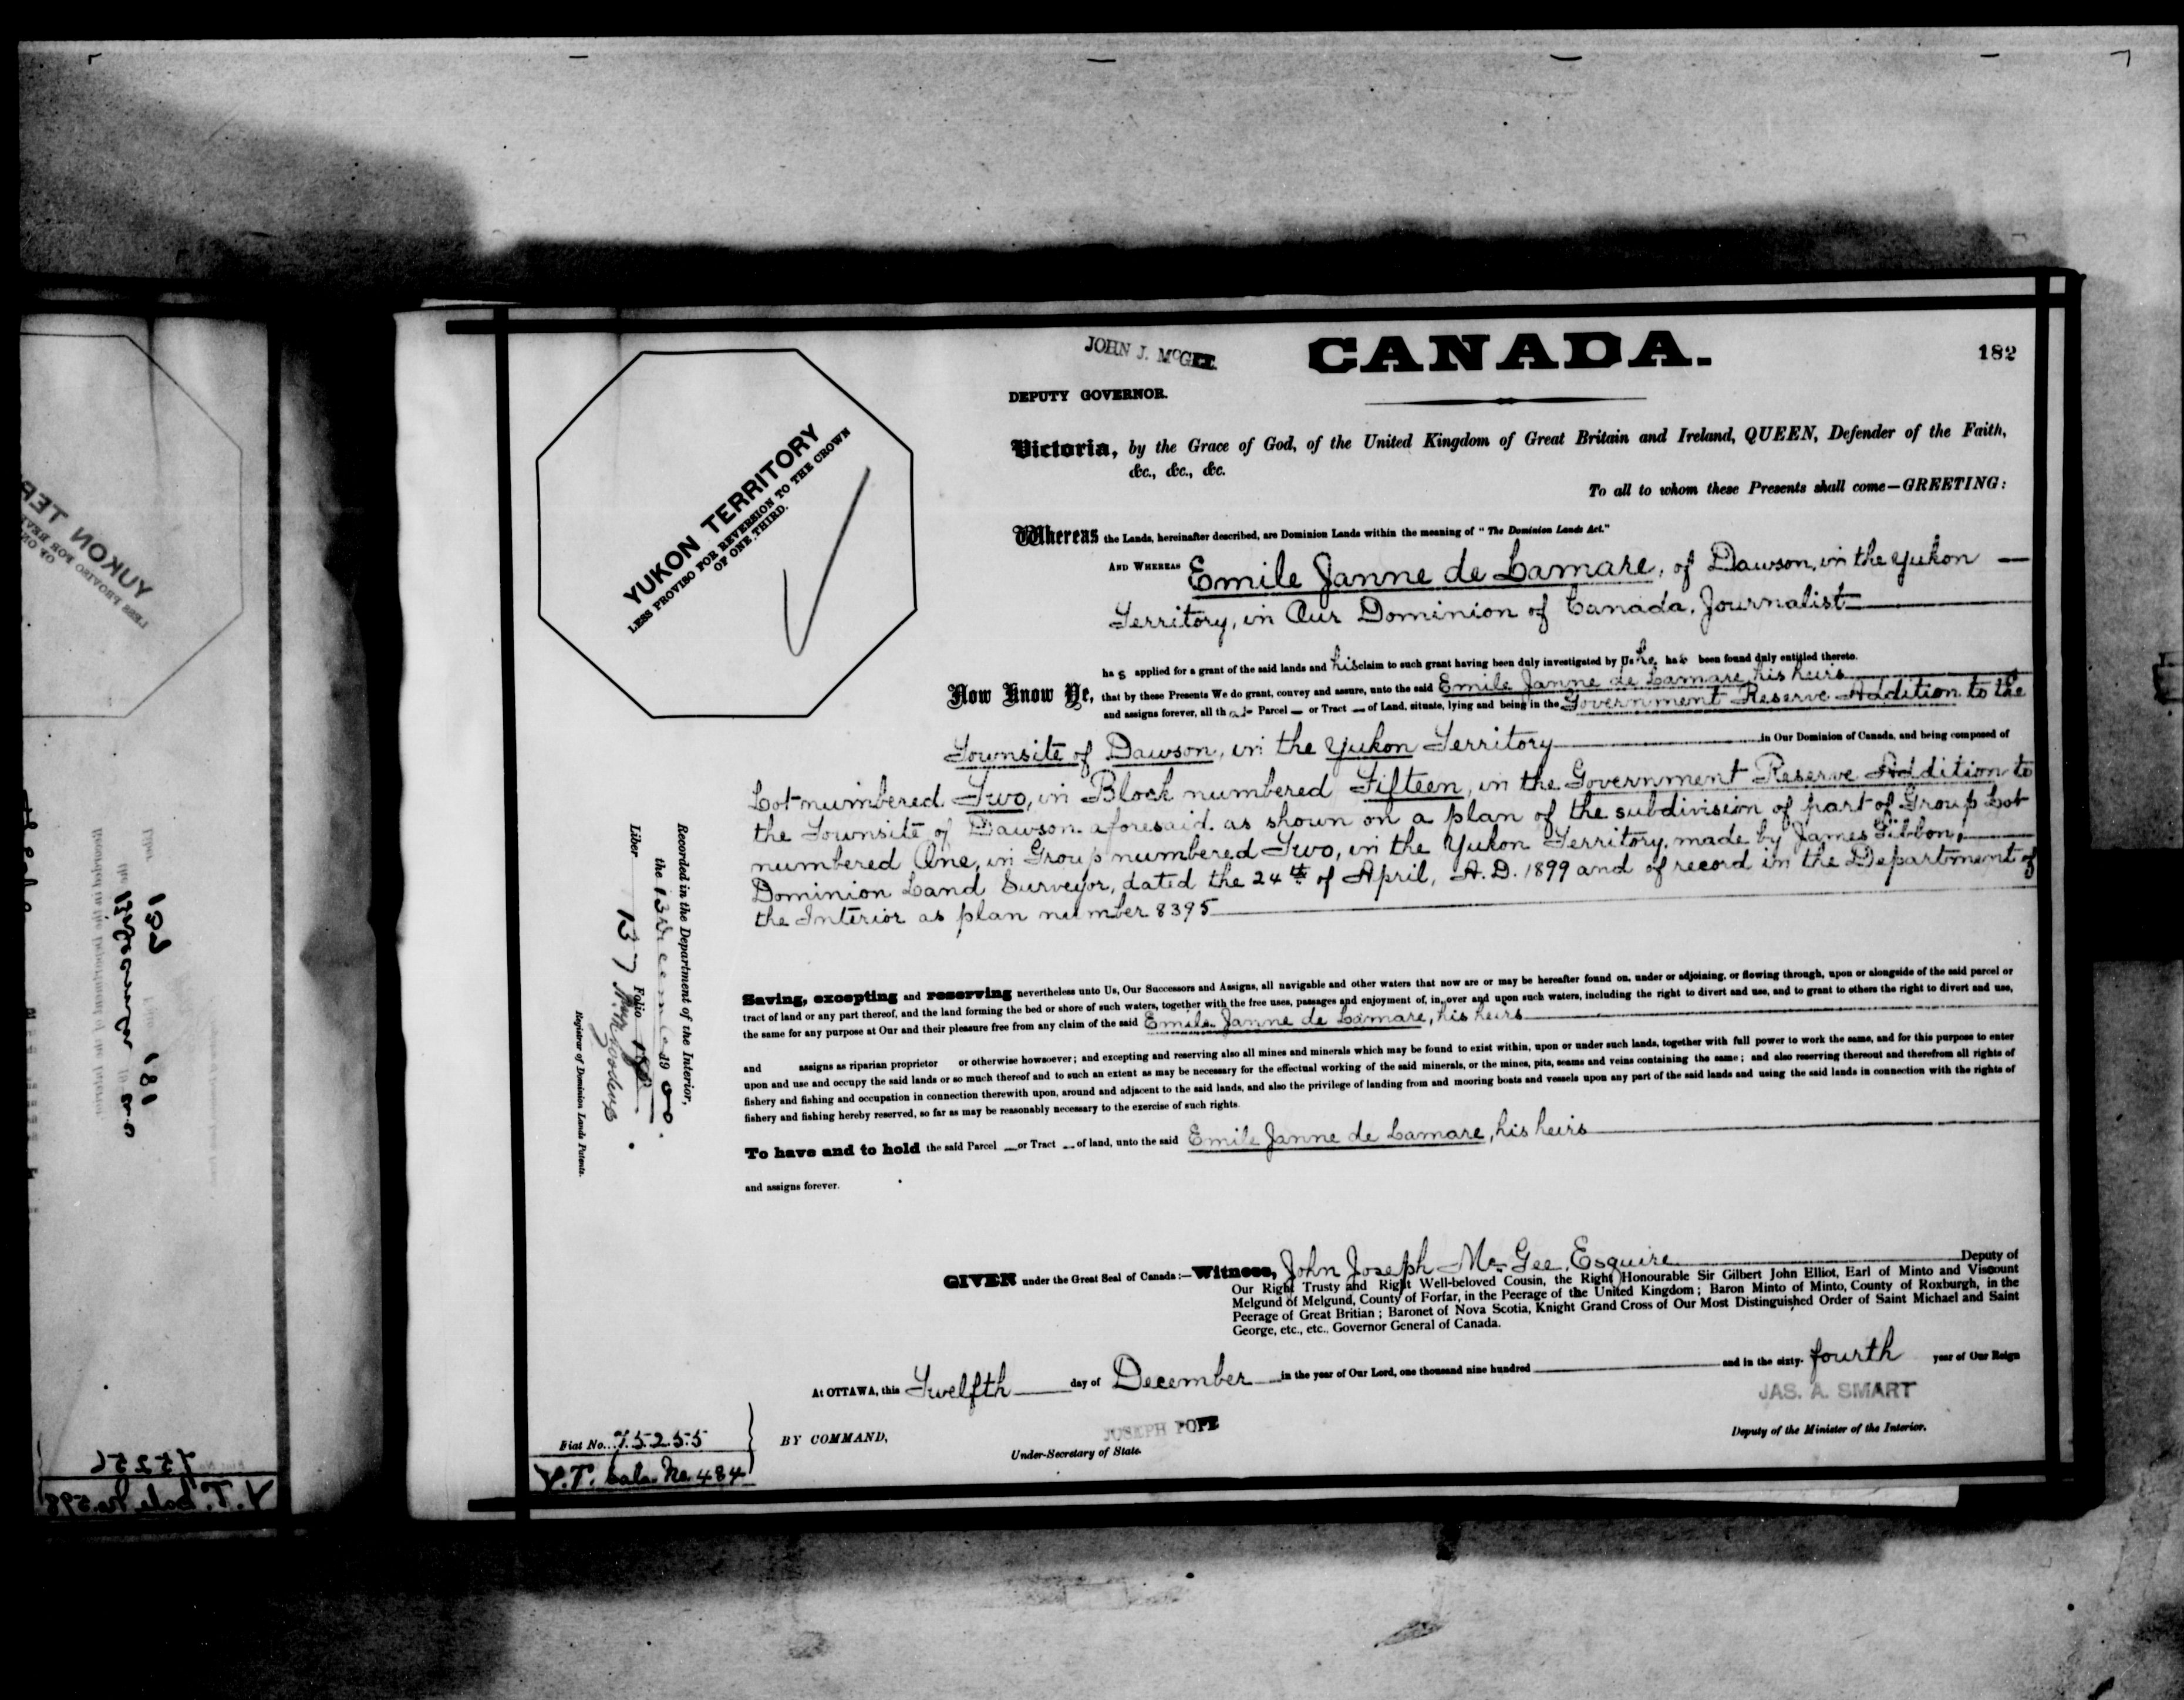 JOHN J. McGEE.
CANADA.
182
DEPUTY GOVERNOR.
YUKON TERRITORY
LESS PROVISO FOR REVERSION TO THE CROWN
OF ONE-THIRD.
Victoria, by the Grace of God, of the United Kingdom of Great Britain and Ireland, QUEEN, Defender of the Faith,
&c., &c., &c.
To all to whom these Presents shall come—GREETING:
Whereas the Lands, hereinafter described, are Dominion Lands within the meaning of "The Dominion Lands Act."
AND WHEREAS Emile Janne de Lamare, of Dawson, in the Yukon —
Territory, in Our Dominion of Canada, Journalist
has applied for a grant of the said lands and his claim to such grant having been duly investigated by Us he has been found duly entitled thereto.
Now Know Ye, that by these Presents We do grant, convey and assure, unto the said Emile Janne de Lamare, his heirs
and assigns forever, all that Parcel — or Tract — of Land, situate, lying and being in the Government Reserve Addition to the
Townsite of Dawson, in the Yukon Territory in Our Dominion of Canada, and being composed of
Lot numbered Two, in Block numbered Fifteen, in the Government Reserve Addition to
the Townsite of Dawson aforesaid. as shown on a plan of the subdivision of part of Group Lot
numbered One, in Group numbered Two, in the Yukon Territory, made by James Gibbon,
Dominion Land Surveyor, dated the 24th of April, A.D. 1899 and of record in the Department of
the Interior as plan number 8395
Recorded in the Department of the Interior,
the 13 1900.
Liber 137 Folio 182
Registrar of Dominion Lands Patents.
Saving, excepting and reserving nevertheless unto Us, Our Successors and Assigns, all navigable and other waters that now are or may be hereafter found on, under or adjoining, or flowing through, upon or alongside of the said parcel or
tract of land or any part thereof, and the land forming the bed or shore of such waters, together with the free uses, passages and enjoyment of, in, over and upon such waters, including the right to divert and use, and to grant to others the right to divert and use,
the same for any purpose at Our and their pleasure free from any claim of the said Emile Janne de Lamare, his heirs
and assigns as riparian proprietor or otherwise howsoever; and excepting and reserving also all mines and minerals which may be found to exist within, upon or under such lands, together with full power to work the same, and for this purpose to enter
upon and use and occupy the said lands or so much thereof and to such an extent as may be necessary for the effectual working of the said minerals, or the mines, pits, seams and veins containing the same; and also reserving thereout and therefrom all rights of
fishery and fishing and occupation in connection therewith upon, around and adjacent to the said lands, and also the privilege of landing from and mooring boats and vessels upon any part of the said lands and using the said lands in connection with the rights of
fishery and fishing hereby reserved, so far as may be reasonably necessary to the exercise of such rights.
To have and to hold the said Parcel — or Tract — of land, unto the said Emile Janne de Lamare, his heirs
and assigns forever.
GIVEN under the Great Seal of Canada:—Witness, John Joseph McGee, Esquire Deputy of
Our Right Trusty and Right Well-beloved Cousin, the Right Honourable Sir Gilbert John Elliot, Earl of Minto and Viscount
Melgund of Melgund, County of Forfar, in the Peerage of the United Kingdom; Baron Minto of Minto, County of Roxburgh, in the
Peerage of Great Britian; Baronet of Nova Scotia, Knight Grand Cross of Our Most Distinguished Order of Saint Michael and Saint
George, etc., etc., Governor General of Canada.
At OTTAWA, this Twelfth day of December in the year of Our Lord, one thousand nine hundred and in the sixty-fourth year of Our Reign
JAS. A. SMART
BY COMMAND,
JOSEPH POPE
Under-Secretary of State.
Deputy of the Minister of the Interior.
Fiat No. 75255
Y.T. Sale No. 484